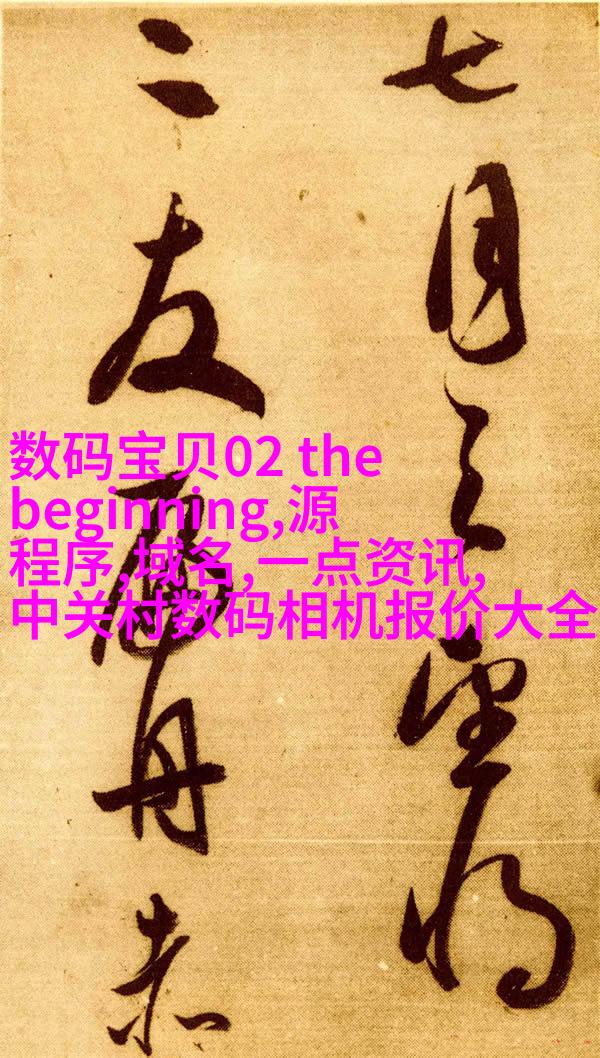 七月之望将
二友舟赤
数码宝贝02 the
beginning,源
程序,域名,一点资讯,
中关村数码相机报价大全